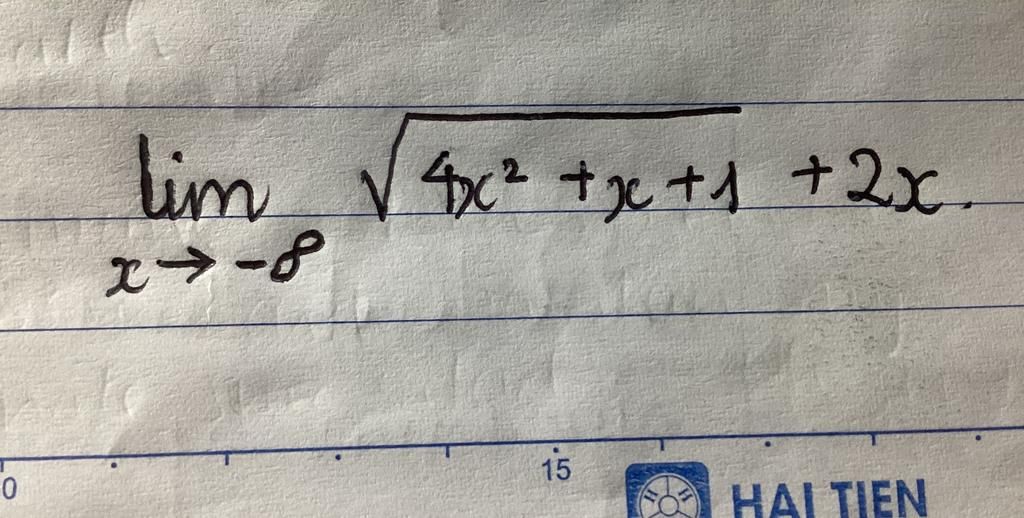 lim √(4x² + x + 1) + 2x.
x → -8
0 15
HAI TIEN